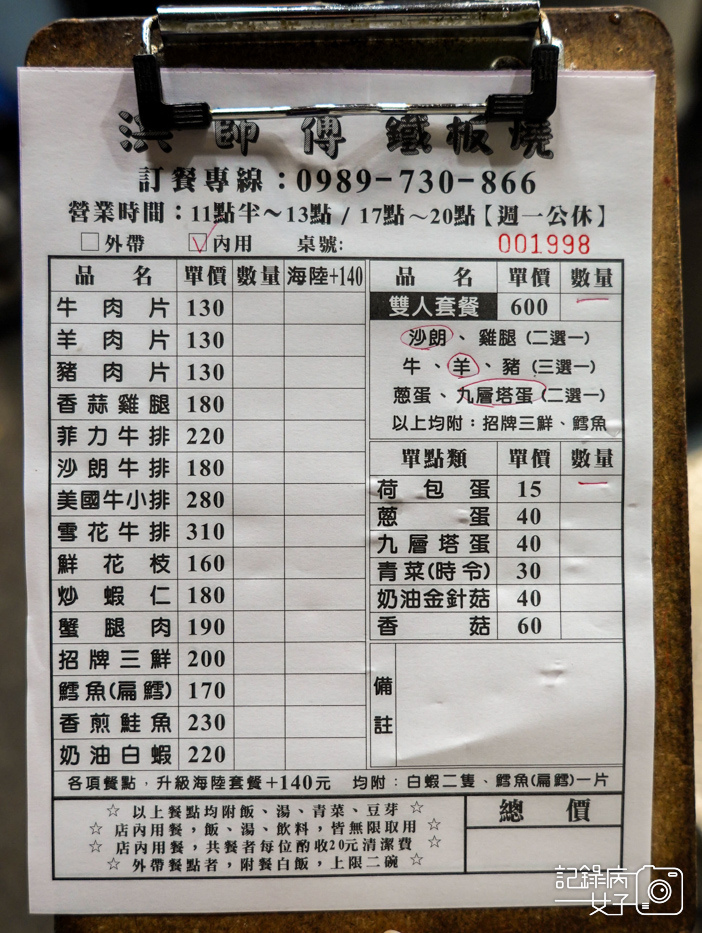 洪師傅鐵板燒
訂餐專線：0989-730-866
營業時間：11點半～13點 / 17點～20點【週一公休】
□外帶 ☑內用 桌號: 001998
品名 單價 數量 海陸+140
牛肉片 130
羊肉片 130
豬肉片 130
香蒜雞腿 180
菲力牛排 220
沙朗牛排 180
美國牛小排 280
雪花牛排 310
鮮花枝 160
炒蝦仁 180
蟹腿肉 190
招牌三鮮 200
鱈魚(扁鱈) 170
香煎鮭魚 230
奶油白蝦 220
品名 單價 數量
雙人套餐 600 一
沙朗、雞腿 (二選一)
牛、羊、豬 (三選一)
蔥蛋、九層塔蛋 (二選一)
以上均附：招牌三鮮、鱈魚
單點類 單價 數量
荷包蛋 15 一
蔥蛋 40
九層塔蛋 40
青菜(時令) 30
奶油金針菇 40
香菇 60
備註
各項餐點，升級海陸套餐+140元 均附：白蝦二隻、鱈魚(扁鱈)一片
☆ 以上餐點均附飯、湯、青菜、豆芽 ☆
☆ 店內用餐，飯、湯、飲料，皆無限取用 ☆
☆ 店內用餐，共餐者每位酌收20元清潔費 ☆
☆ 外帶餐點者，附餐白飯，上限二碗 ☆
總價
記錄病
女子